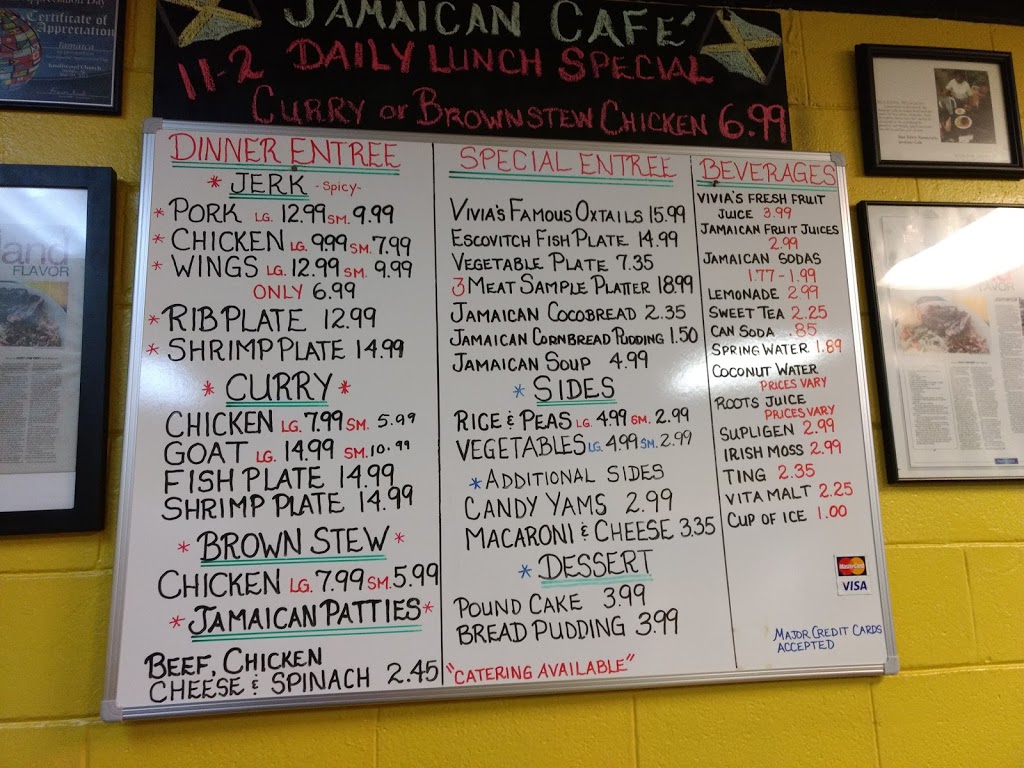 Certificate of
Appreciation
Jamaica
JAMAICAN CAFÉ
11-2 DAILY LUNCH SPECIAL
CURRY or BROWNSTEW CHICKEN 6.99
land
FLAVOR
DINNER ENTREE
* JERK -Spicy-
* PORK LG. 12.99 SM. 9.99
* CHICKEN LG. 999 SM. 7.99
* WINGS LG. 12.99 SM. 9.99
ONLY 6.99
* RIB PLATE 12.99
* SHRIMP PLATE 14.99
* CURRY *
CHICKEN LG. 7.99 SM. 5.99
GOAT LG. 14.99 SM. 10.99
FISH PLATE 14.99
SHRIMP PLATE 14.99
* BROWN STEW *
CHICKEN LG. 7.99 SM. 5.99
* JAMAICAN PATTIES *
BEEF, CHICKEN
CHEESE & SPINACH 2.45
SPECIAL ENTREE
VIVIA'S FAMOUS OXTAILS 15.99
ESCOVITCH FISH PLATE 14.99
VEGETABLE PLATE 7.35
3 MEAT SAMPLE PLATTER 18.99
JAMAICAN COCOBREAD 2.35
JAMAICAN CORNBREAD PUDDING 1.50
JAMAICAN SOUP 4.99
* SIDES
RICE & PEAS LG. 4.99 SM. 2.99
VEGETABLES LG. 4.99 SM. 2.99
* ADDITIONAL SIDES
CANDY YAMS 2.99
MACARONI & CHEESE 3.35
* DESSERT
POUND CAKE 3.99
BREAD PUDDING 3.99
"CATERING AVAILABLE"
BEVERAGES
VIVIA'S FRESH FRUIT
JUICE 3.99
JAMAICAN FRUIT JUICES
2.99
JAMAICAN SODAS
1.77 - 1.99
LEMONADE 2.99
SWEET TEA 2.25
CAN SODA .85
SPRING WATER 1.89
COCONUT WATER
PRICES VARY
ROOTS JUICE
PRICES VARY
SUPLIGEN 2.99
IRISH MOSS 2.99
TING 2.35
VITA MALT 2.25
CUP OF ICE 1.00
MasterCard
VISA
MAJOR CREDIT CARDS
ACCEPTED
FLAVOR